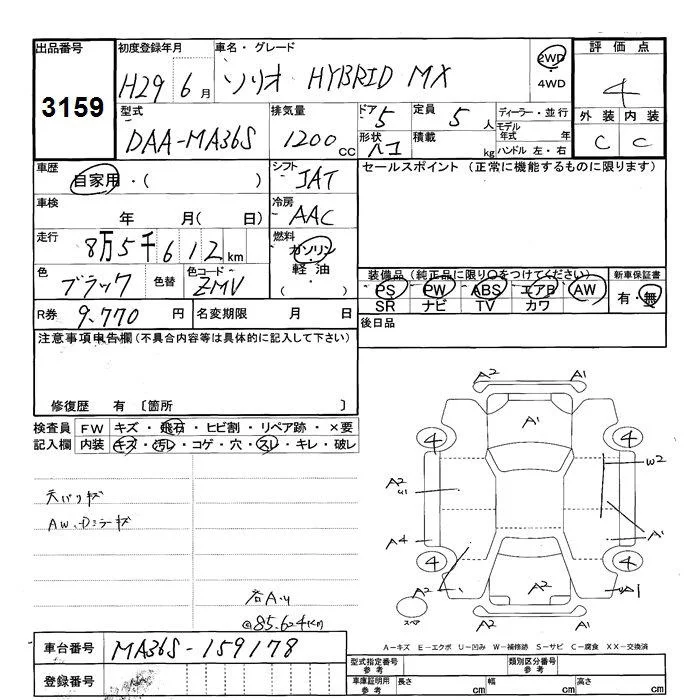 出品番号 初度登録年月 車名・グレード 評価点
3159 H29 6月 ソリオ HYBRID MX 2WD 4WD 4
型式 排気量 ドア 定員 ディーラー・並行 外装 内装
DAA-MA36S 1200cc 5 5人 モデル年式 年 C C
形状 積載 kg ハンドル 左・右
車歴 シフト セールスポイント (正常に機能するものに限ります)
自家用・( ) IAT
車検 冷房
年 月( 日) AAC
走行 燃料
8万5千612km ガソリン
軽油
(・)
色 色替 色コード 装備品(純正品に限り○をつけてください) 新車保証書
ブラック ZMV PS PW ABS エアB AW 有・無
SR ナビ TV カワ
R券 9,770円 名変期限 月 日 後日品
注意事項申告欄(不具合内容等は具体的に記入して下さい)
修復歴 有 〔箇所 〕
検査員 FW キズ・飛石・ヒビ割・リペア跡・×要
記入欄 内装 キズ・汚レ・コゲ・穴・スレ・キレ・破レ
天バリキズ
AW、Dミラーキズ
@85.624km
A2 A1
A1
4 4
A2 W2
A4 A1
4 4
A2 A2 A1
A2 A2
スペア
A-キズ E-エクボ U-凹み W-補修跡 S-サビ C-腐食 XX-交換済
車台番号 MA36S-159178
登録番号
型式指定番号 参考 類別区分番号 参考
車庫証明用 参考 長さ cm 幅 cm 高さ cm